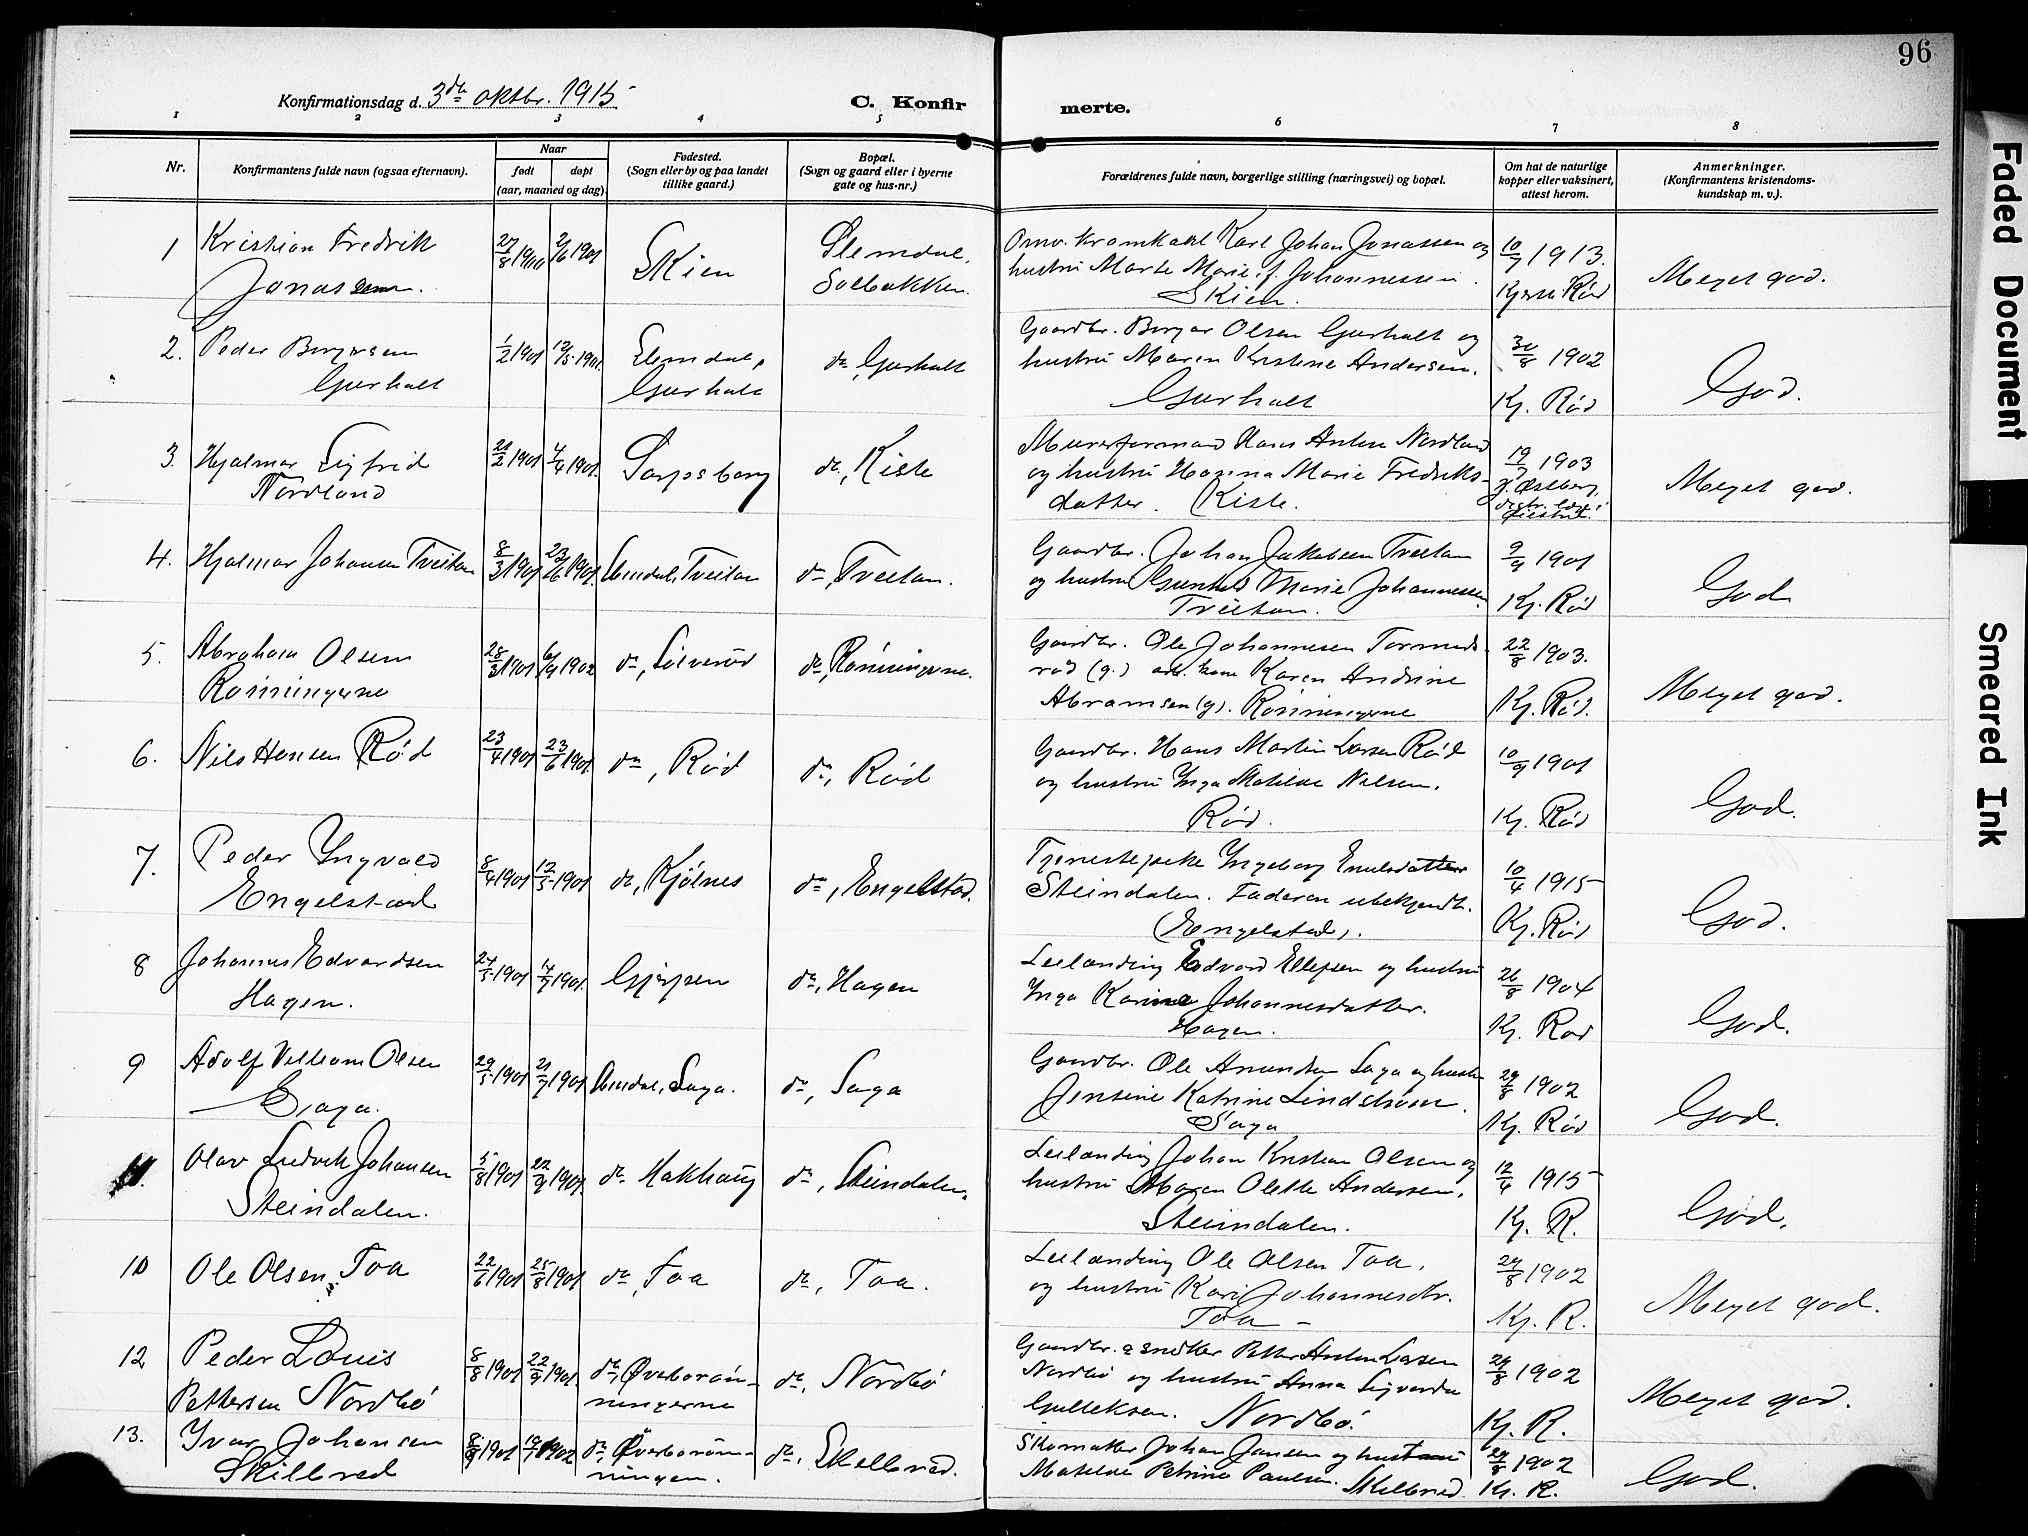 96
Konfirmationsdag d. 3die oktbr. 1915
C. Konfirmerte.
1 2 3 4 5 6 7 8
Nr.
Konfirmantens fulde navn (ogsaa efternavn).
Naar
født
døpt
(aar, maaned og dag)
Fødested.
(Sogn eller by og paa landet
tillike gaard.)
Bopæl.
(Sogn og gaard eller i byerne
gate og hus-nr.)
Forældrenes fulde navn, borgerlige stilling (næringsvei) og bopæl.
Om hat de naturlige
kopper eller vaksinert,
attest herom.
Anmerkninger.
(Konfirmantens kristendoms-
kundskap m. v.).
1 Kristian Fredrik
Jonassen.
27/8 1900 2/6 1901
Skien
Slemdal,
Solbakken.
Karl Johan Jonassen og
hustru Marte Marie f. Johannessen.
Skien.
10/7 1913.
Rød
Meget god.
2. Peder Borgersen
Gurholt
1/2 1901
Slemdal,
Gurholt
do, Gurholt
Gaardbr. Borger Olsen Gurholt og
hustru Maren Kristine Andersen.
Gurholt
30/8 1902
Kj. Rød
God.
3. Hjalmar Sigfrid
Nordland
21/2 1901 4/4 1901.
Sarpsborg
do, Kiste
Murerformand Hans Anton Nordland
og hustru Hanna Marie Fredriks-
datter. Kiste.
19/7 1903
Østberg,
distr. læge
Meget god.
4. Hjalmar Johansen Tveitan
8/3 1901 23/6 1901.
Slemdal, Tveitan
do, Tveitan.
Gaardbr. Johan Jakobsen Tveitan
og hustru Gunhild Marie Johannessen.
Tveitan.
9/9 1901
Kj. Rød
God
5. Abraham Olsen
Rønningerne
28/3 1901 6/9 1902
do, Sølverød
do, Rønningerne.
Gaardbr. Ole Johannesen Tormods-
rød (g.) Karen Andrine
Abramsen (g). Rønningerne
22/8 1903.
Kj. Rød.
Meget god.
6. Nils Hansen Rød
23/4 1901 23/6 1901
do, Rød
do, Rød
Gaardbr. Hans Martin Larsen Rød
og hustru Inga Matilde Nilsen.
Rød.
10/9 1901
Kj. Rød
God.
7. Peder Yngvald
Engelstad
8/4 1901 12/5 1901
do, Kjølnes
do, Engelstad.
Tjenestepike Ingeborg Emilsdatter
Steindalen. Faderen ubekjendt.
(Engelstad).
10/4 1915
Kj. Rød
God.
8 Johannes Edvardsen
Hagen.
27/5 1901 14/7 1901.
Gjerpen
do, Hagen
Leilænding Edvard Ellefsen og hustru
Inga Karine Johannesdatter.
Hagen.
26/8 1904
Kj. Rød
God.
9 Adolf Vilham Olsen
Saga.
29/5 1901 21/7 1901
Slemdal, Saga.
do, Saga
Gaardbr. Ole Amundsen Saga og hustru
Jensine Katrine Lindstrøm.
Saga
29/8 1902
Kj. Rød
God.
11. Olav Ludvik Johansen
Steindalen.
5/8 1901 22/9 1901.
do Hakhaug
do, Steindalen.
Leilænding Johan Kristian Olsen og
hustru Maren Olette Andersen.
Steindalen.
12/4 1915
Kj. R.
God.
10 Ole Olsen Toa
22/6 1901 25/8 1901
do, Toa
do, Toa.
Leilænding Ole Olsen Toa.
og hustru Kari Johannesdtr.
Toa –
29/8 1902
Kj. R.
Meget god.
12 Peder Louis
Pettersen Nordbø
8/8 1901 22/9 1901.
do, Øverbørøn-
ningerne
do, Nordbø
Gaardbr. & snekker Petter Anton Larsen
Nordbø og hustru Anna Sigvarda
Gulleksen. Nordbø.
29/8 1902
Kj. R.
Meget god.
13. Ivar Johansen
Skilbred
8/9 1901 1902
do, Øverbørøn-
ningen.
do, Skelbred.
Skomaker Johan Jansen og hustru
Matilde Petrine Paulsen. Skelbred.
29/8 1902
Kj. R.
God.
Faded Document
Smeared Ink